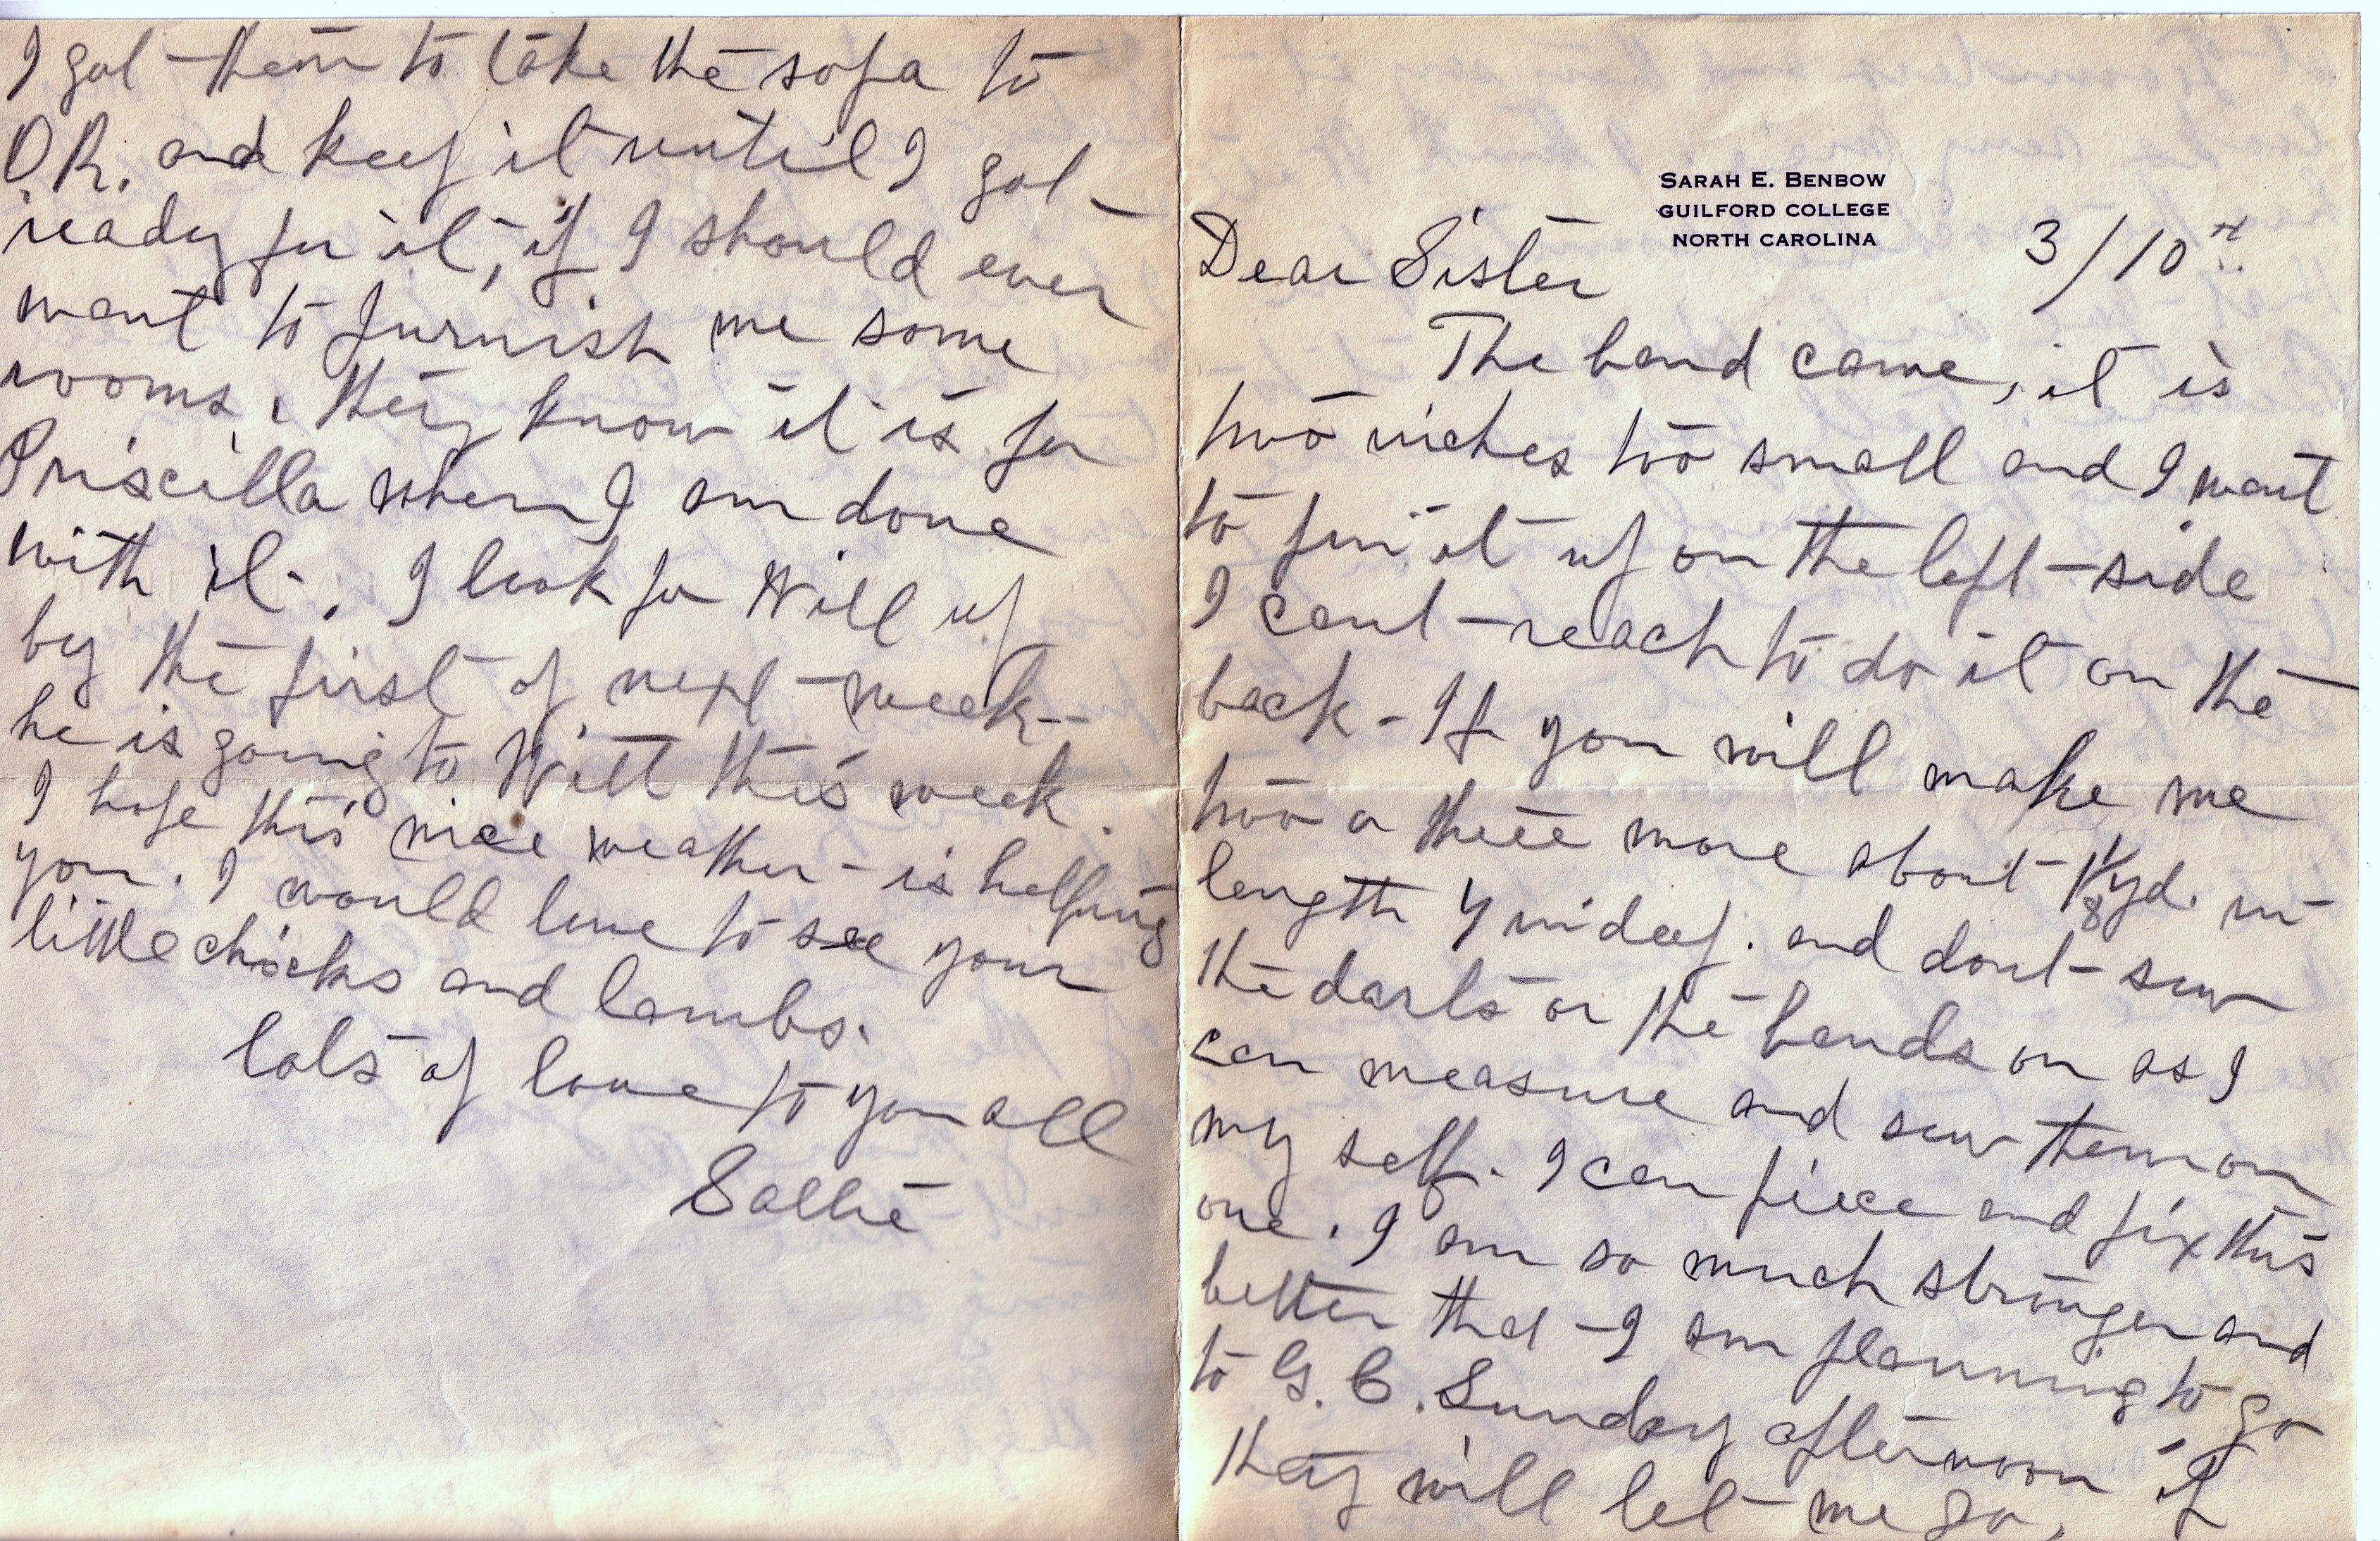 SARAH E. BENBOW
GUILFORD COLLEGE
NORTH CAROLINA
3/10th
Dear Sister
The band came, it is
two inches too small and I want
to pin it up on the left side
I cant reach to do it on the
back - If you will make me
two or three more about 1 1/8 yd. in
length 4 in deep. and dont sew
the darts or the bands on as I
can measure and sew them on
my self. I can piece and fix this
one. I am so much stronger and
better that I am planning to go
to G. C. Sunday afternoon if
they will let me go.
I got them to take the sofa to
O.R. and keep it until I got
ready for it, if I should ever
want to furnish me some
rooms, they know it is for
Priscilla when I am done
with it. I look for Will up
by the first of next week -
he is going to Witt this week.
I hope this nice weather is helping
you. I would love to see your
little chicks and lambs.
lots of love to you all
Sallie